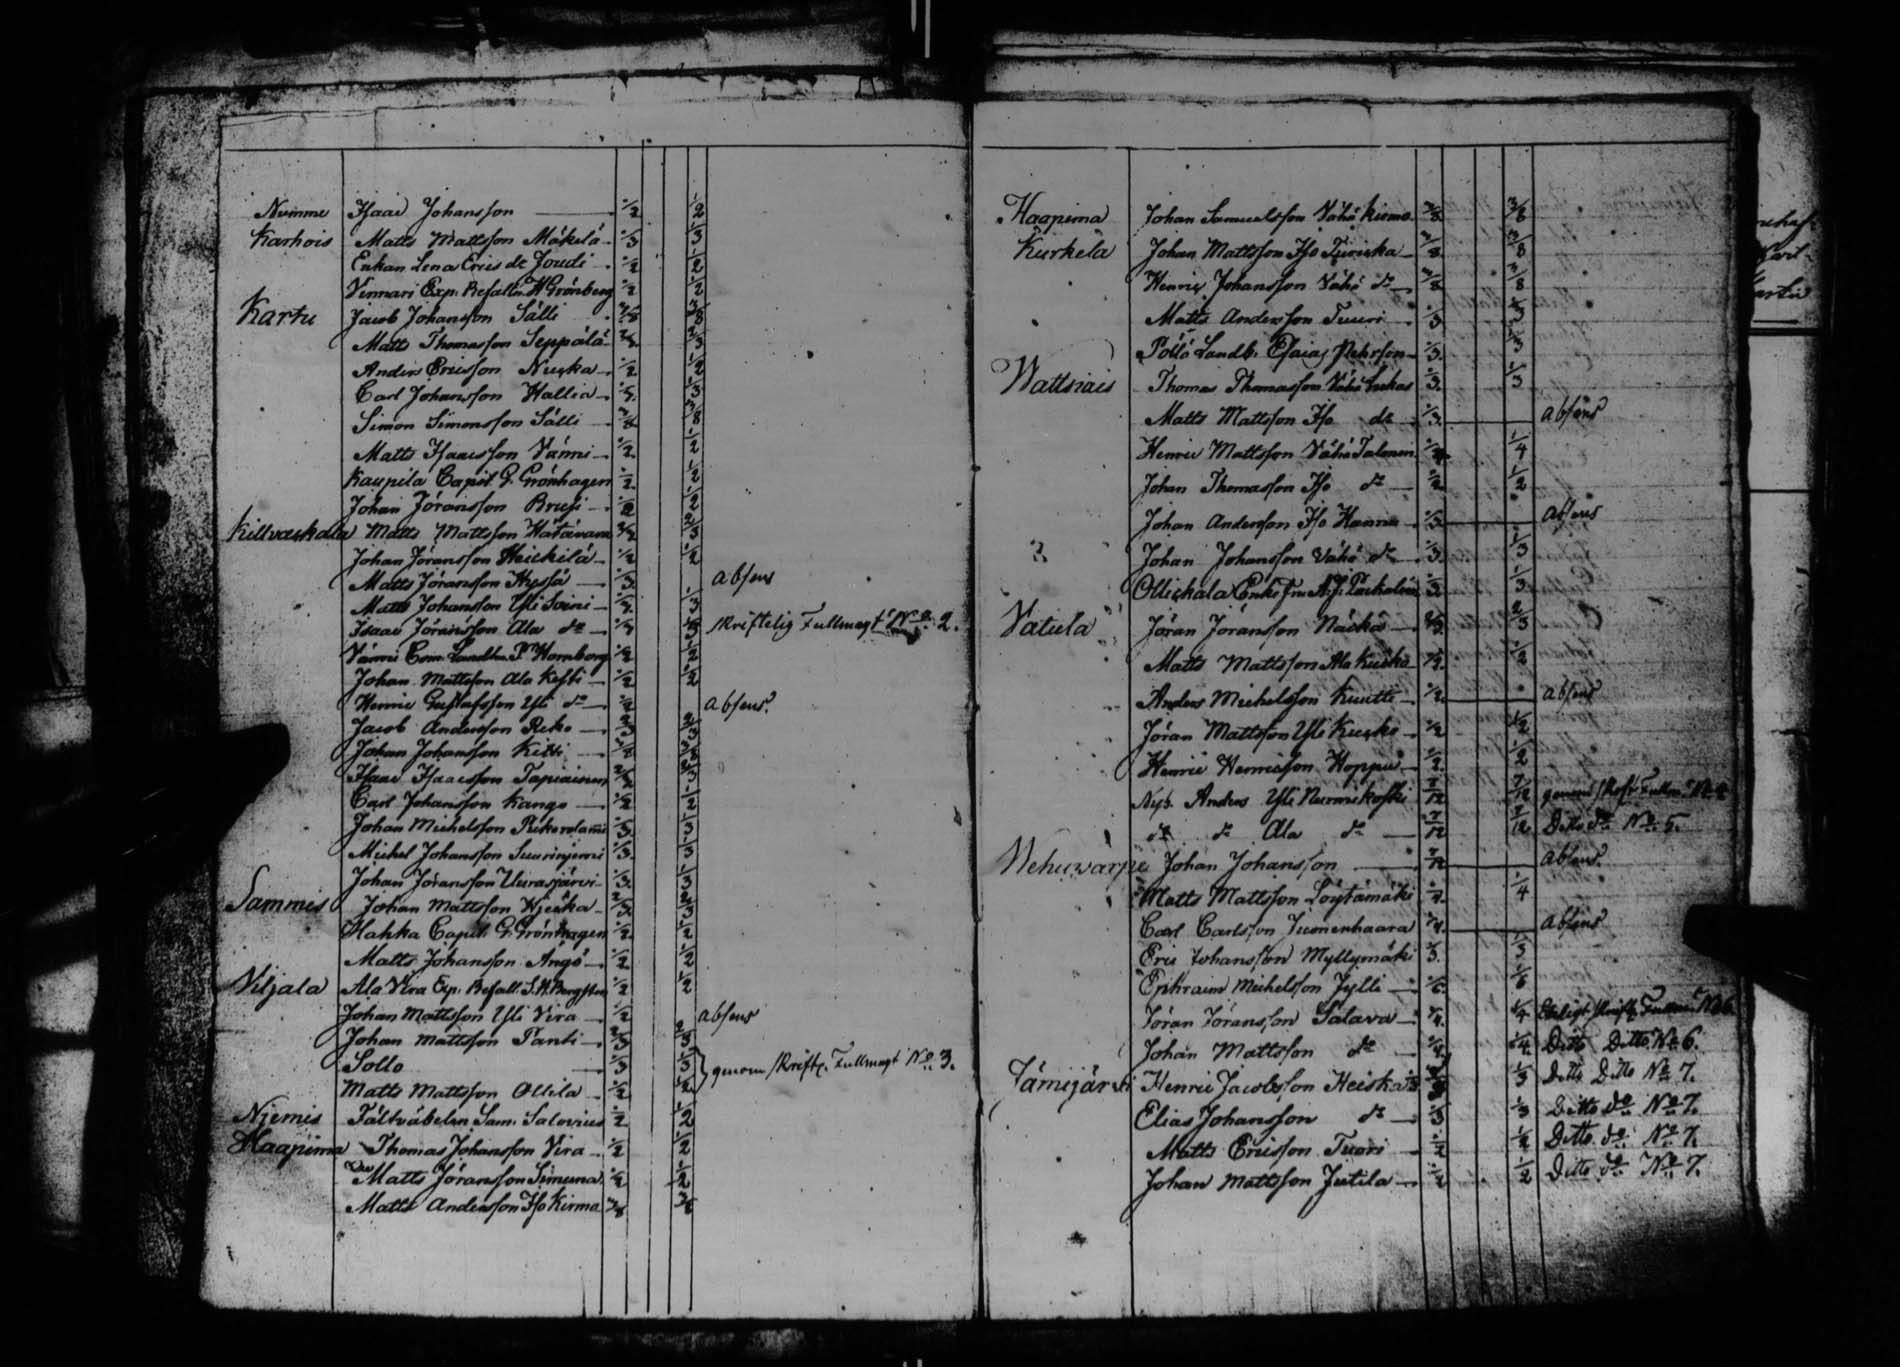 Numme Isaac Johansson 1/2 1/2
Karhois Matts Mattsson Mäkelä 1/3 1/3
Enkan Lena Erics dr Joudi 1/2 1/2
Vennari Exp. Befalln Grönberg 1/2 1/2
Kartu Jacob Johansson Sälli 3/8 3/8
Matts Thomasson Seppälä 2/3 2/3
Anders Ericsson Nuska 1/2 1/2
Carl Johansson Hallia 1/3 1/3
Simon Simonsson Sälli 3/8 3/8
Matts Isaacsson Vänni 1/2 1/2
Kaupila Capit. G. Grönhagen 1/2 1/2
Johan Jöransson Brusi 1/2 1/2
Killvaskala Matts Mattsson 2/3 2/3
Johan Jöransson Heickilä 1/2 1/2
Matts Jöransson Hyssä 1/3 absens
Matts Johansson Yli Soini 1/3 1/3
Isaac Jöransson Ala do 1/3 1/3 skriftelig Fullmagt No 2.
Vänni P Homborg 1/2 1/2
Johan Mattsson Ala Kesti 1/2 1/2
Henric Gustafsson Yli do 1/2 absens.
Jacob Andersson Reko 2/3 2/3
Johan Johansson
Isaac Isaacsson Tapiainen 2/3 2/3
Carl Johansson Kango 1/2 1/2
Johan Michelsson 1/3 1/3
Michel Johansson Suurinjemi 1/3 1/3
Johan Jöransson Uurasjärvi 1/3 1/3
Sammis Johan Mattsson 2/3 2/3
Hahka Capit. G. Grönhagen 1/2 1/2
Matts Johansson Ängö 1/2 1/2
Viljala Ala Vira Exp. Befall. 1/2 1/2
Johan Mattsson Yli Vira 1/2 absens
Johan Mattsson Panti 2/3 2/3
Sollo 1/3 1/3 genom skriftl. Fullmagt No 3.
Matts Mattsson Ollila 1/2 1/2
Niemis Fältväbeln Sam. Salovius 1/2 1/2
Haapima Thomas Johansson Vira 1/2 1/2
Matts Jöransson Simuna 1/2 1/2
Matts Andersson Iso Kirma 3/8 3/8
Haapima Johan Samuelsson Vähä Kirma 3/8 3/8
Kurkela Johan Mattsson Iso Turicka 3/8 3/8
Henric Johansson Vähä do 3/8 3/8
Matts Andersson Tuuri 1/3 1/3
Pöllö Landb. Esaias Pehrsson 1/3 1/3
Wattsiais Thomas Thomasson Vähä 1/3 1/3
Matts Mattsson Iso do 1/3 absens
Henric Mattsson Vähä Talonen 1/4 1/4
Johan Thomasson Iso do 1/2 1/2
Johan Andersson Iso Hannu 1/3 absens
Johan Johansson Vähä do 1/3 1/3
Ollickala Enke Fru 1/3 1/3
Vatula Jöran Jöransson Näcka 2/3 2/3
Matts Mattsson Ala Kuska 1/2 1/2
Anders Michelsson Kuutti 1/2 absens
Jöran Mattsson Yli Kuska 1/2 1/2
Henric Henricsson Hoppu 1/2 1/2
Nyb. Anders Yli Nurmikoski 7/12 7/12 genom skrft. Fullm. No 4
do do Ala do 7/12 7/12 Ditto do No 5.
Wehuvarpe Johan Johansson absens
Matts Mattsson Löytämäki 1/4 1/4
Carl Carlsson Juonenhaara 1/4 absens
Eric Johansson Myllymäki 1/3 1/3
Ephraim Michelson Jylli 1/6 1/6
Jöran Jöransson Salava 1/4 1/4 Enligt skriftl. Fullm. No 6.
Johan Mattsson do 1/4 1/4 Ditto Ditto No 6.
Jämijärvi Henric Jacobsson Heiska 1/3 Ditto Ditto No 7.
Elias Johansson do 1/3 1/3 Ditto do No 7.
Matts Ericsson Tuori 1/2 1/2 Ditto do No 7.
Johan Mattsson Jutila 1/2 1/2 Ditto do No 7.